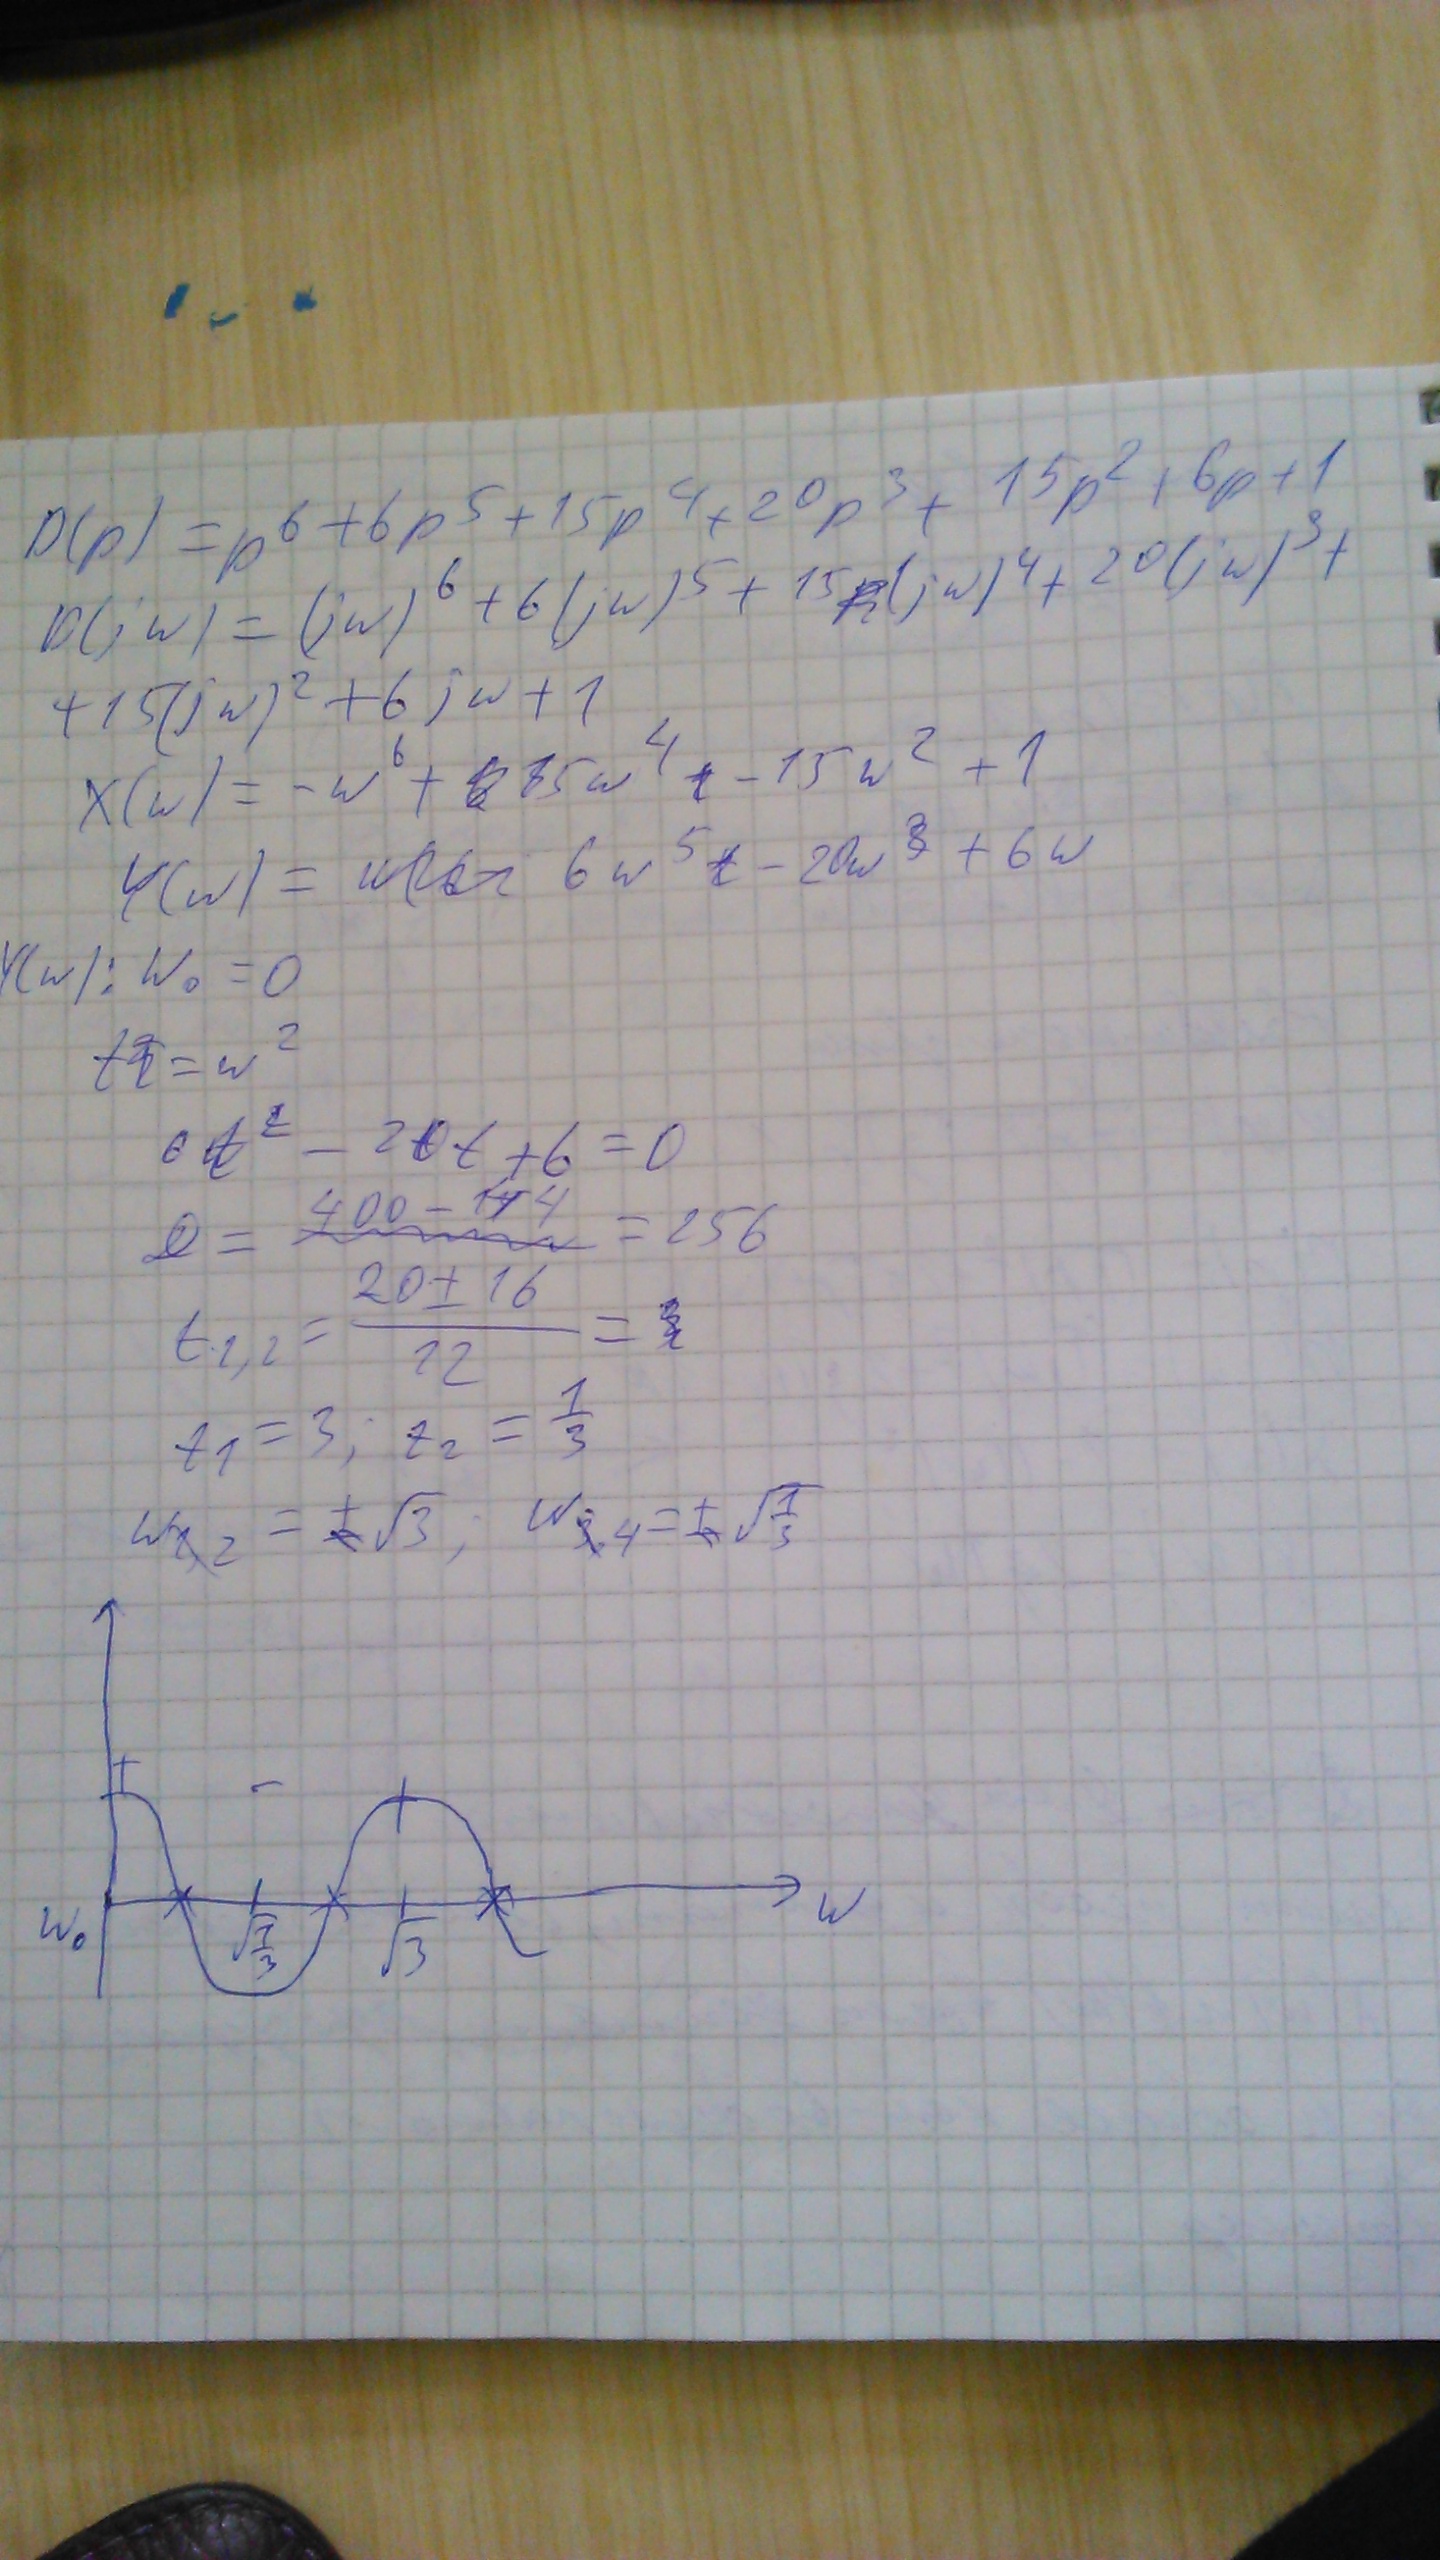 D(p) = p⁶ + 6p⁵ + 15p⁴ + 20p³ + 15p² + 6p + 1
D(jw) = (jw)⁶ + 6(jw)⁵ + 15(jw)⁴ + 20(jw)³ +
+ 15(jw)² + 6jw + 1
X(w) = -w⁶ + 15w⁴ - 15w² + 1
Y(w) = 6w⁵ - 20w³ + 6w
Y(w): w₀ = 0
t = w²
6t² - 20t + 6 = 0
D = 400 - 144 = 256
t₁,₂ = (20 ± 16)/12 =
t₁ = 3; t₂ = 1/3
w₁,₂ = ±√3; w₃,₄ = ±√(1/3)
+ - +
w₀ √(1/3) √3 w